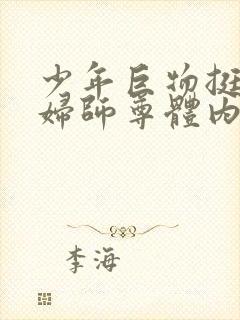 少年巨物挺
婦師尊體內
李海